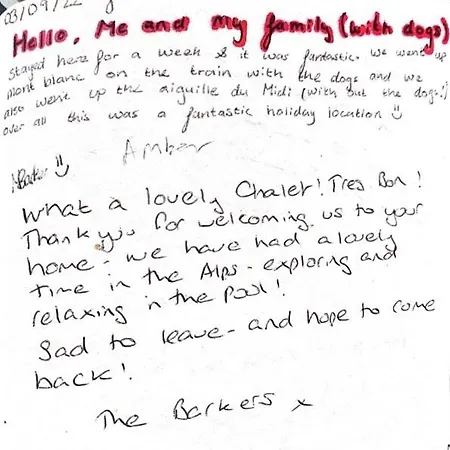 03/09/22
Hello, Me and my family (with dogs)
stayed here for a week & it was fantastic. we went up
mont blanc on the train with the dogs and we
also went up the aiguille du Midi (with out the dogs!)
over all this was a fantastic holiday location
Amber
Barker
What a lovely Chalet! Tres Bon!
Thank you for welcoming us to your
home - we have had a lovely
time in the Alps - exploring and
relaxing in the Pool!
Sad to leave - and hope to come
back!
The Barkers x